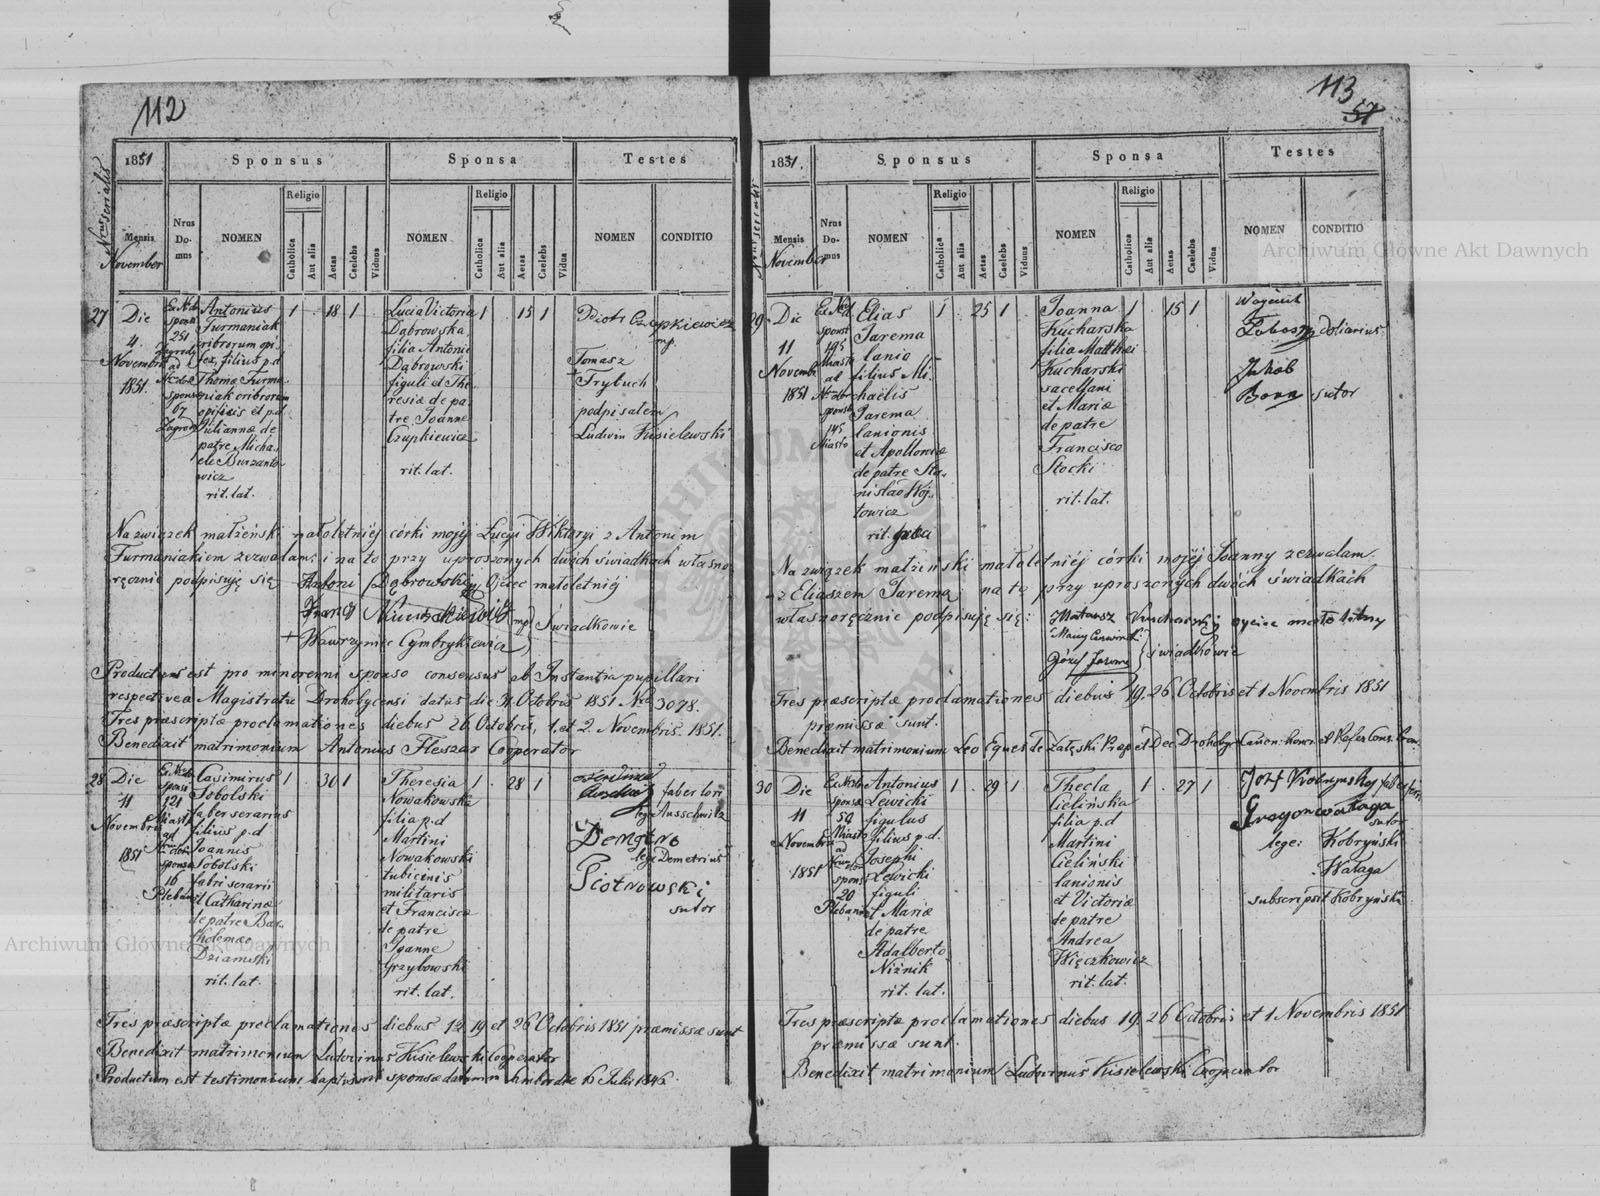 112
1851
Sponsus
Sponsa
Testes
Nrus serialis
Mensis
November
Nrus Do-mus
NOMEN
Religio
Catholica
Aut alia
Aetas
Caelebs
Viduus
NOMEN
Religio
Catholica
Aut alia
Aetas
Caelebs
Vidua
NOMEN
CONDITIO
27
Die
4.
Novembris
1851.
sponsi
251
ad
sponsae
67
Antonius
Furmaniak
cribrorum opi
fex, filius p.d
Thomæ Furma
niak cribrorum
opificis et p.d
Juliannæ de
patre Micha
ele Burzanto
wicz
rit. lat.
1 . 18 1
Lucia Victoria
Dąbrowska
filia Antonii
Dąbrowski
figuli et The
resiæ de pa-
tre Joanne
Czupkiewicz
rit. lat.
1 . 15 1
Piotr Czupkiewicz
mp.
Tomasz
+
Trybuch
podpisałem
Ludwin Kisielewski
Na związek małżeński małoletniéj córki mojéj Łucyi Wiktoryi z Antonim
Furmaniakiem zezwalam; i na to przy uproszonych dwóch świadkach własno
ręcznie podpisuję się Antoni Dąbrowski Ojciec małoletniéj
mp Świadkowie
+ Wawrzyniec Cymbrykiewicz
Productus est pro minorenni sponso consensus ab Instantia pupillari
respective a Magistratu Drohobycensi datus die 31 Octobris 1851 Nro 3078.
Tres præscriptæ proclamationes diebus 26. Octobris, 1. et 2. Novembris 1851.
Benedixit matrimonium Antonius Fleszar Cooperator
28
Die
11
Novembris
1851
sponsi
121
Miasto
ad
sponsae
16
Plebania
Casimirus
Sobolski
faber serarius
filius p.d
Joannis
Sobolski
fabri serarii
et Catharinæ
de patre Bar-
tholomæo
Dziamski
rit. lat.
1 . 30 1
Theresia
Nowakowska
filia p.d
Martini
Nowakowski
tubicinis
militaris
et Franciscæ
de patre
Joanne
Grzybowski
rit. lat.
1 . 28 1
faber lori
lege Ausschwitz
Demetro
lege Demetrius
Piotrowski
sutor
Tres præscriptæ proclamationes diebus 12. 19 et 26 Octobris 1851 præmissæ sunt
Benedixit matrimonium Ludovinus Kisielewski Cooperator
Productum est testimonium baptismi sponsæ datum 16 Julii 1846.
113
57
1851.
Sponsus
Sponsa
Testes
Nrus serialis
Mensis
November
Nrus Do-mus
NOMEN
Religio
Catholica
Aut alia
Aetas
Caelebs
Viduus
NOMEN
Religio
Catholica
Aut alia
Aetas
Caelebs
Vidua
NOMEN
CONDITIO
29
Die
11
Novembr
1851
sponsi
195
Miasto
ad
sponsae
145
Miasto
Elias
Jarema
lanio
filius Mi-
chaëlis
Jarema
lanionis
et Apolloniæ
de patre Sta-
nislao Wój-
towicz
rit. græci
1 . 25 1
Joanna
Kucharska
filia Matthæi
Kucharski
sacellani
et Mariæ
de patre
Francisco
Stocki
rit. lat.
1 . 15 1
doliarius
Jakób
Bona sutor
Na związek małżeński małoletniéj córki mojéj Joanny zezwalam
z Eliaszem Jarema, na to przy uproszonych dwóch świadkach
własnoręcznie podpisuję się:
Józef Jarema } świadkowie
Tres præscriptæ proclamationes diebus 19. 26 Octobris et 1 Novembris 1851
præmissæ sunt.
Benedixit matrimonium Leo Eques de Załęski Præp et Dec Drohoby Canon. honor. et Refer Cons.
30
Die
11
Novembris
1851
sponsi
54
Miasto
ad
sponsae
20
Plebania
Antonius
Lewicki
figulus
filius p.d.
Josephi
Lewicki
figuli
et Mariæ
de patre
Adalberto
Niżnik
rit. lat.
1 . 29 1
Thecla
Cielińska
filia p.d
Martini
Cieliński
lanionis
et Victoriæ
de patre
Andrea
Więczkowicz
rit. lat.
1 . 27 1
sutor
lege: Kobryński
Wataga
subscripsit Kobryński
Tres præscriptæ proclamationes diebus 19. 26 Octobris et 1 Novembris 1851
præmissæ sunt.
Benedixit matrimonium Ludovinus Kisielewski Cooperator
Archiwum Główne Akt Dawnych
Archiwum Główne Akt Dawnych